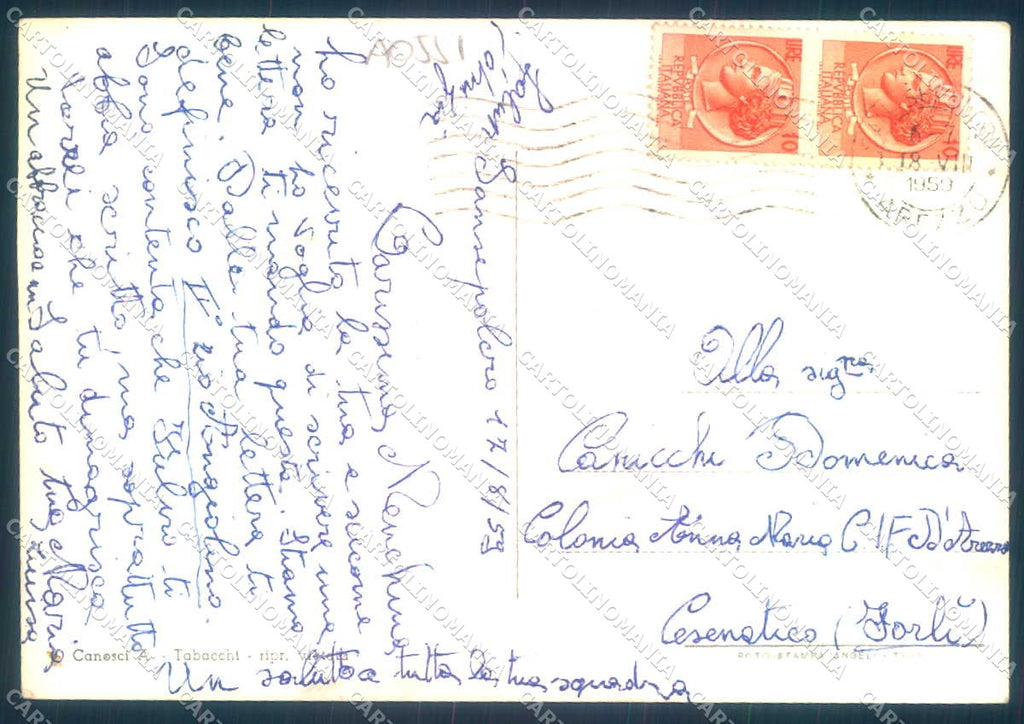 Sansepolcro 17/8/59
Carissima Menchina
ho ricevuto la tua e siccome
non ho voglia di scrivere una
lettera ti mando questa. Stiamo
bene. Dalla tua lettera ti
definisco II° zio Angiolino.
Sono contenta che Fulvio ti
abbia scritto, ma soprattutto
vorrei che tu dimagrisca
Un abbraccio un saluto tua Maria
Un saluto a tutta la tua squadra
Saluti
A0551
LIRE
REPVBBLICA
ITALIANA
10
LIRE
REPVBBLICA
ITALIANA
10
18 VIII
1959
AREZZO
Alla sig.na
Canicchi Domenica
Colonia Anna Maria C I F D'Arezzo
Cesenatico (Forlì)
Canosci A. - Tabacchi - ripr. vietata
ROTOSTAMPA ANGELI
CARTOLINOMANIA